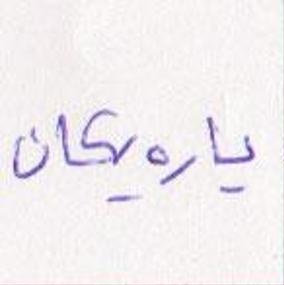 یاره یکان